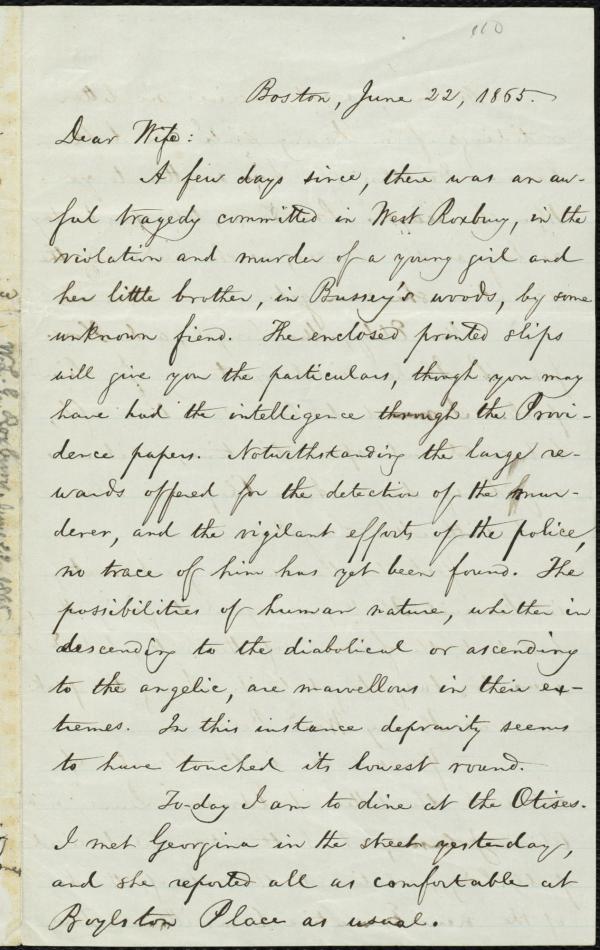 110
Boston, June 22, 1865.
Dear Wife:
A few days since, there was an aw-
ful tragedy committed in West Roxbury, in the
violation and murder of a young girl and
her little brother, in Bussey's woods, by some
unknown fiend. The enclosed printed slips
will give you the particulars, though you may
have had the intelligence through the Provi-
dence papers. Notwithstanding the large re-
wards offered for the detection of the mur-
derer, and the vigilant efforts of the police,
no trace of him has yet been found. The
possibilities of human nature, whether in
descending to the diabolical or ascending
to the angelic, are marvellous in their ex-
tremes. In this instance depravity seems
to have touched its lowest round.
To-day I am to dine at the Otises.
I met Georgina in the street yesterday,
and she reported all as comfortable at
Boylston Place as usual.